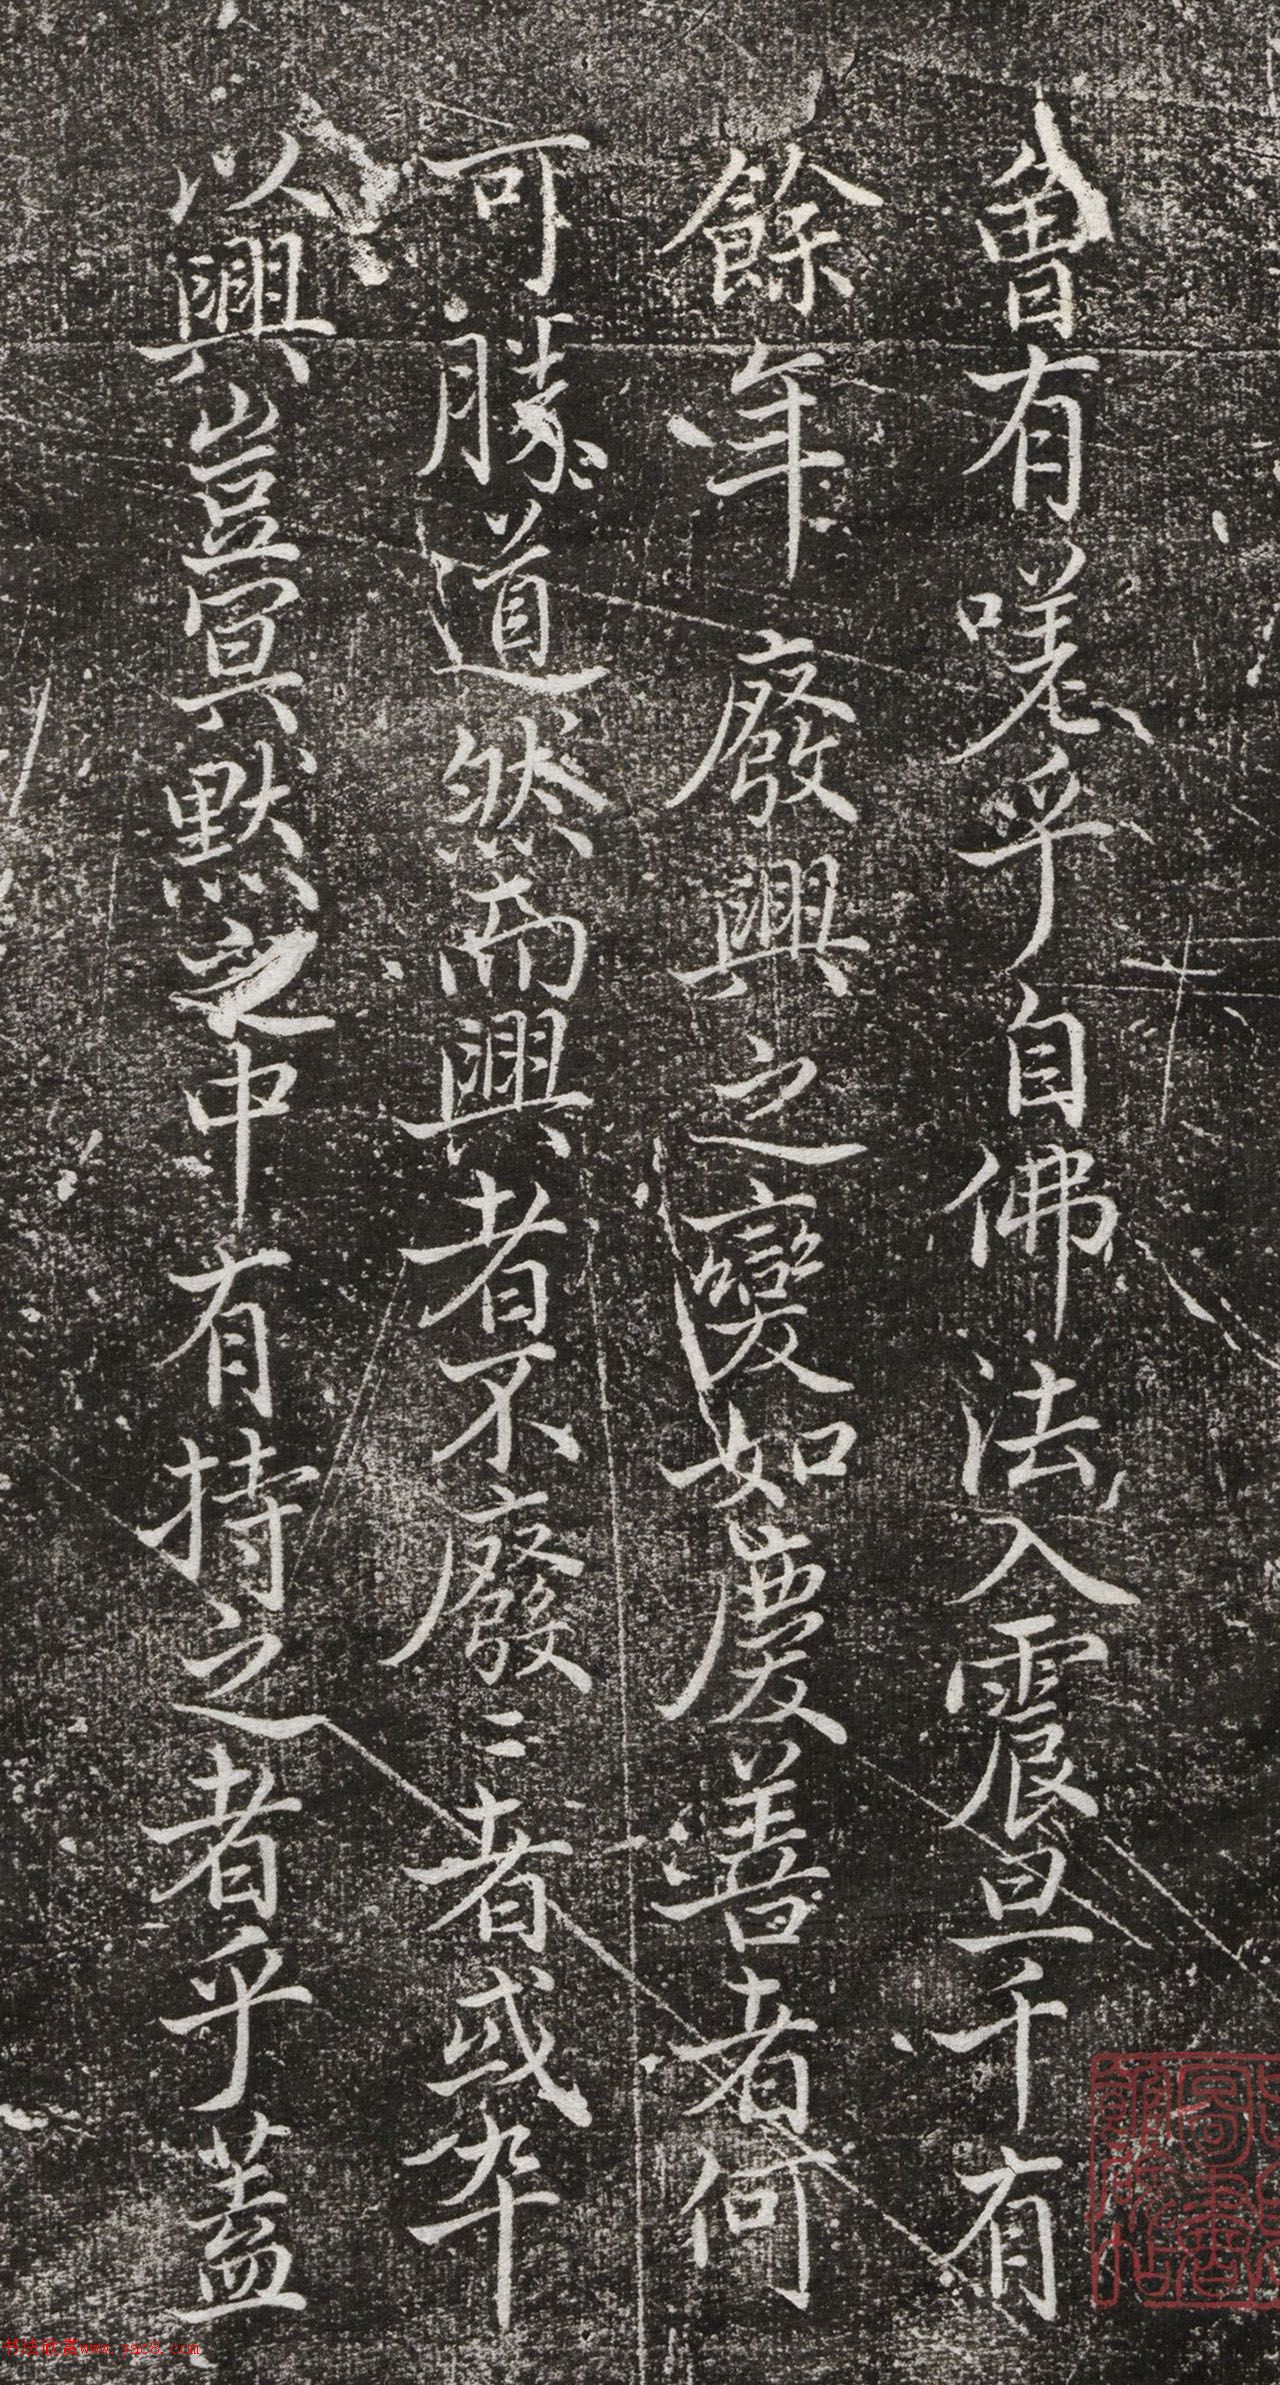 曾有嗟乎自佛法入震旦一千有
餘年廢興之變如慶善者何
可勝道然而興者不廢二者或卒
以興豈冥默之中有持之者乎蓋
书法欣赏www.yac8.com